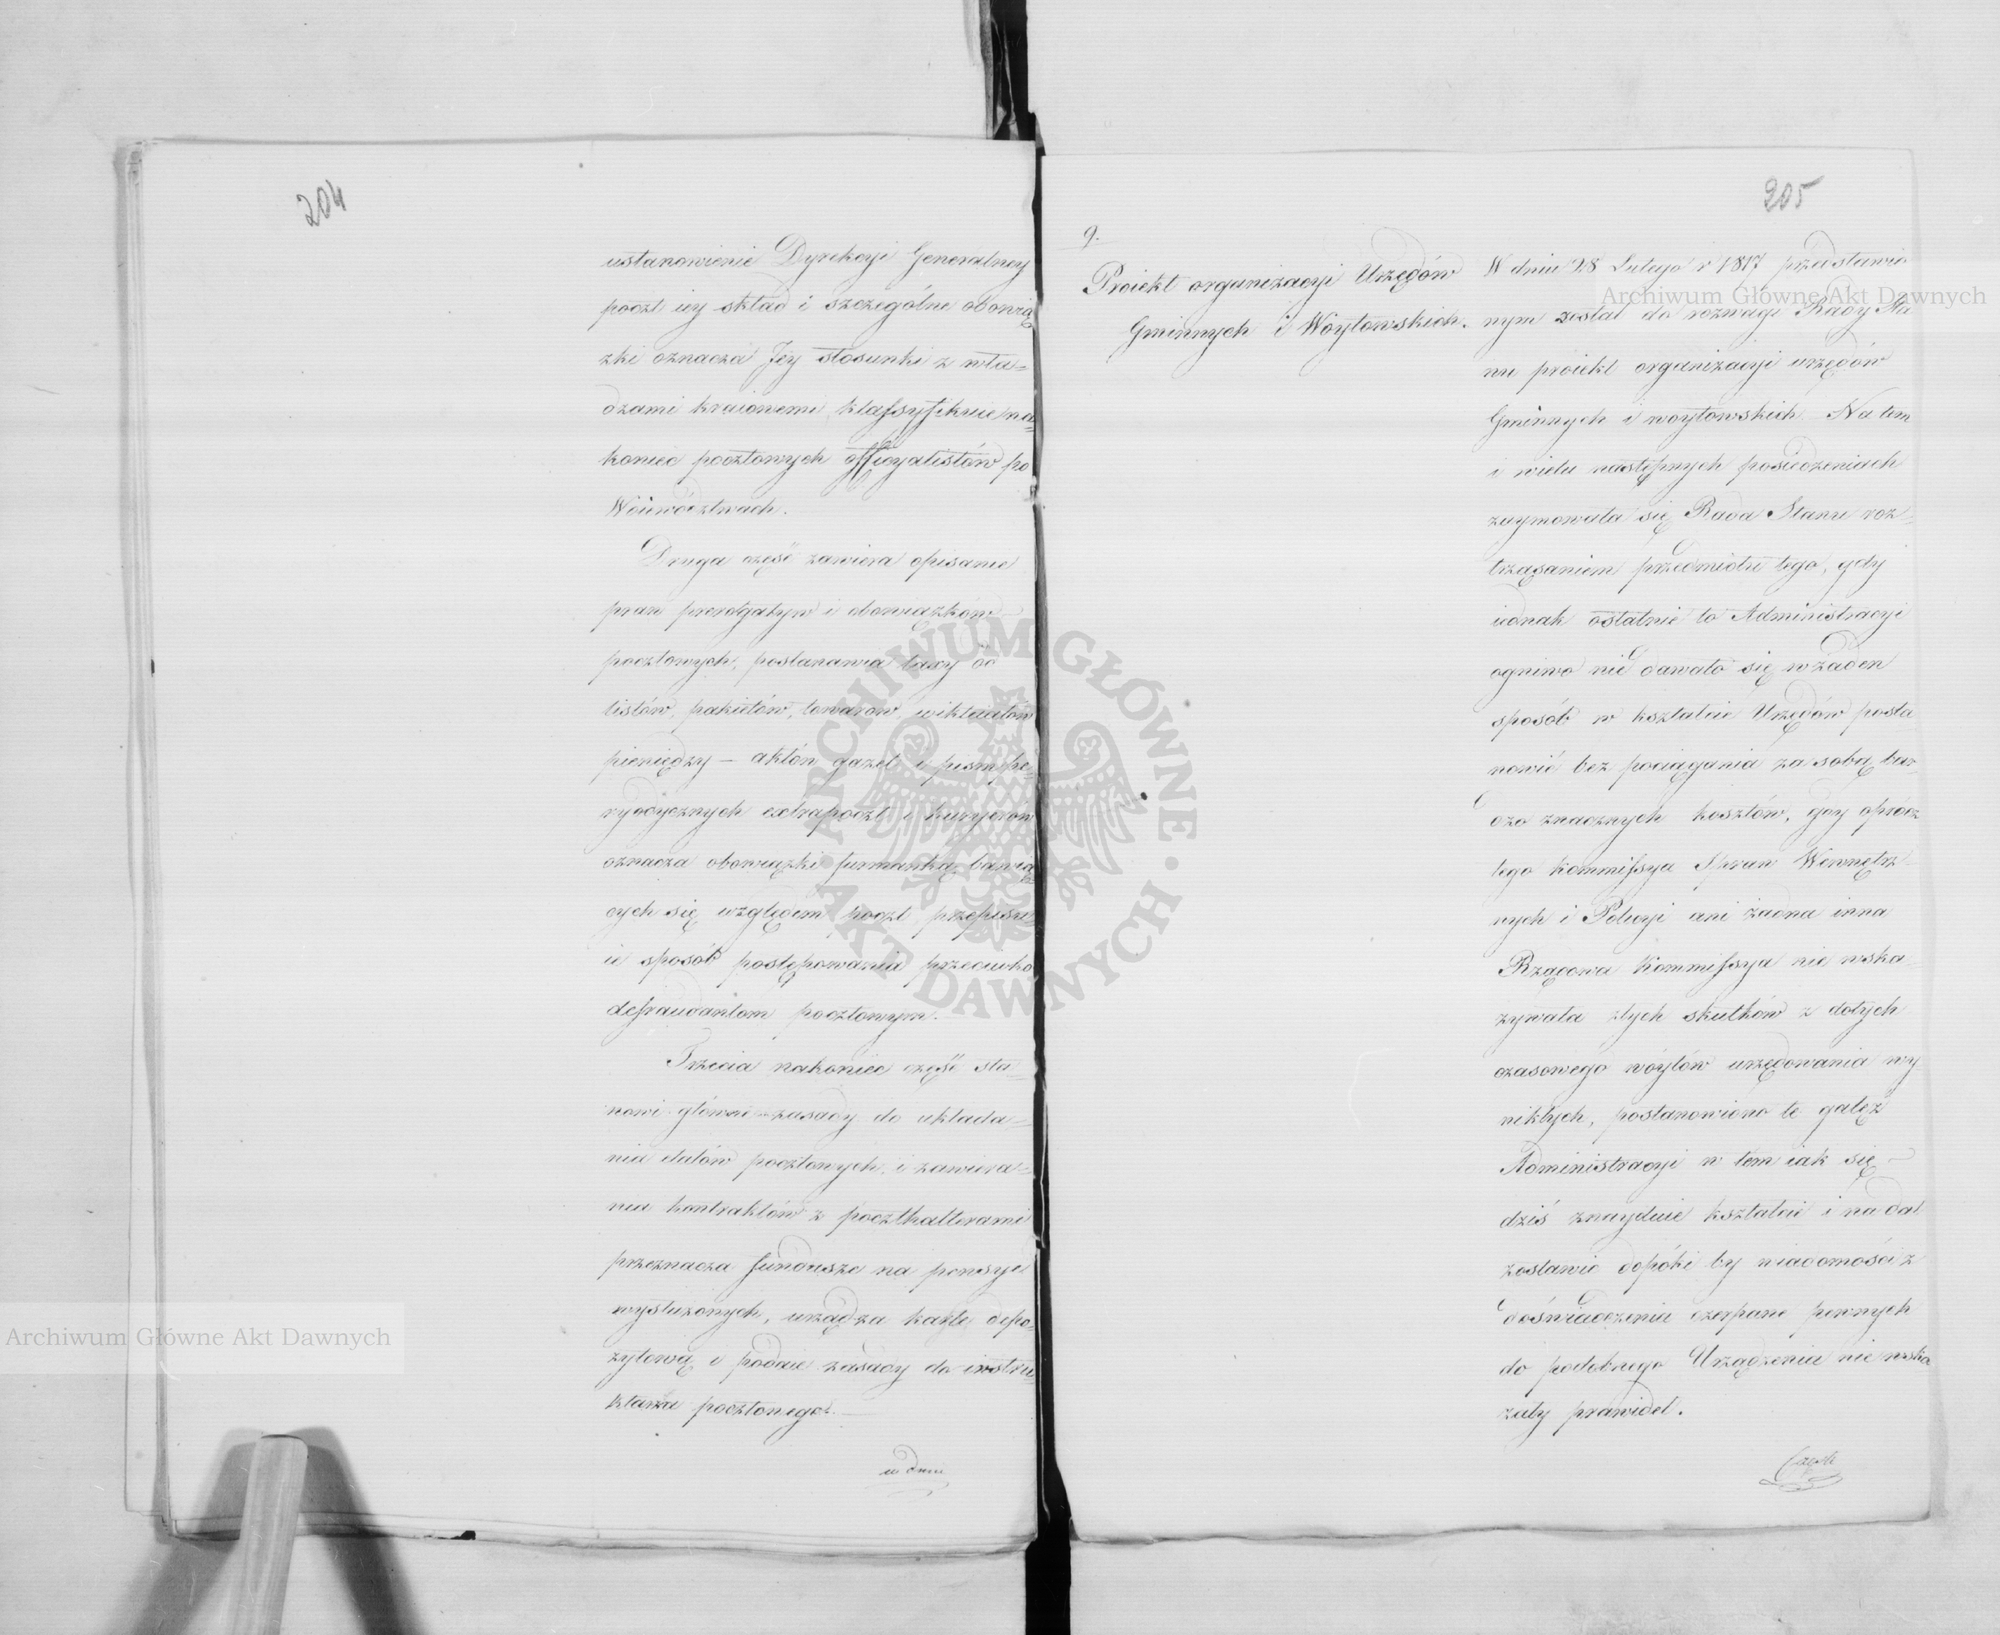 204
ustanowienie Dyrekcyi Generalney
poczt iey skład i szczególne obowią
zki oznacza Jey stosunki z wła=
dzami kraiowemi, klassyfikuie na=
koniec pocztowych officyalistów po
Woiewództwach.
Druga część zawiera opisanie
praw prerogatyw i obowiązków
pocztowych, postanawia taxy od
listów, pakietów, towarów, wiktuałów
pieniędzy – aktów gazet i pism pe=
ryodycznych extrapoczt i kuryerów
oznacza obowiązki furmanką bawią
cych się względem poczt przepisu
ie sposób postępowania przeciwko
defraudantom pocztowym.
Trzecia nakoniec część sta=
nowi główne zasady do układa=
nia etatów pocztowych, i zawiera=
nia kontraktów z poczthalterami
przeznacza fundusze na pensye
wysłużonych, urządza kassę depo=
zytową i podaie zasady do instru=
ktarza pocztowego. —
w dniu
205
9.
Proiekt organizacyi Urzędów
Gminnych i Woytowskich.
W dniu 28 Lutego r 1817 przedstawio
nym został do rozwagi Rady Sta
nu proiekt organizacyi urzędów
Gminnych i woytowskich. Na tem
i wielu następnych posiedzeniach
zaymowała się Rada Stanu roz=
trząsaniem przedmiotu tego, gdy
iednak ostatnie to Administracyi
ogniwo nie dawało się w żaden
sposób w kształcie Urzędów posta
nowić bez pociągania za sobą bar=
dzo znacznych kosztów, gdy oprócz
tego Kommissya Spraw Wewnętrz=
nych i Policyi ani żadna inna
Rządowa Kommissya nie wska=
zywała złych skutków z dotych
czasowego wóytów urzędowania wy
nikłych, postanowiono tę gałęź
Administracyi w tem iak się
dziś znayduie kształcie i nadal
zostawić dopóki by wiadomości z
doświadczenia czerpane pewnych
do podobnego Urządzenia nie wska
zały prawideł.
Archiwum Główne Akt Dawnych
Archiwum Główne Akt Dawnych
ARCHIWUM GŁÓWNE · AKT DAWNYCH ·